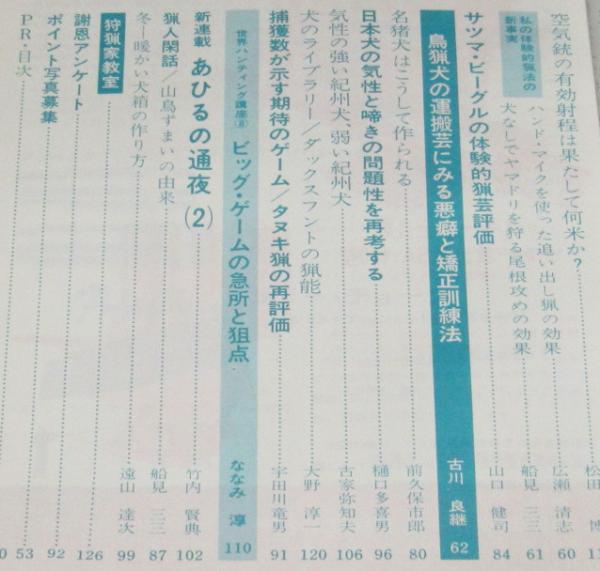 空気銃の有効射程は果たして何米か?……松田 博 11
私の体験的猟法の新事実
ハンド・マイクを使った追い出し猟の効果……広瀬 清志 60
犬なしでヤマドリを狩る尾根攻めの効果……船見 三三 61
サツマ・ビーグルの体験的猟芸評価……山口 健司 84
鳥猟犬の運搬芸にみる悪癖と矯正訓練法 古川 良継 62
名猪犬はこうして作られる……前久保市郎 80
日本犬の気性と啼きの問題性を再考する……樋口多喜男 96
気性の強い紀州犬、弱い紀州犬……古家弥知夫 106
犬のライブラリー/ダックスフントの猟能……大野 淳一 120
捕獲数が示す期待のゲーム/タヌキ猟の再評価……宇田川竜男 91
世界ハンティング講座⑧ ビッグ・ゲームの急所と狙点 ななみ 淳 110
新連載 あひるの通夜(2)……竹内 賢典 102
猟人閑話/山鳥ずまいの由来……船見 三三 87
冬―暖かい犬箱の作り方……遠山 達次 99
狩猟家教室
謝恩アンケート……126
ポイント写真募集……92
PR・目次……53